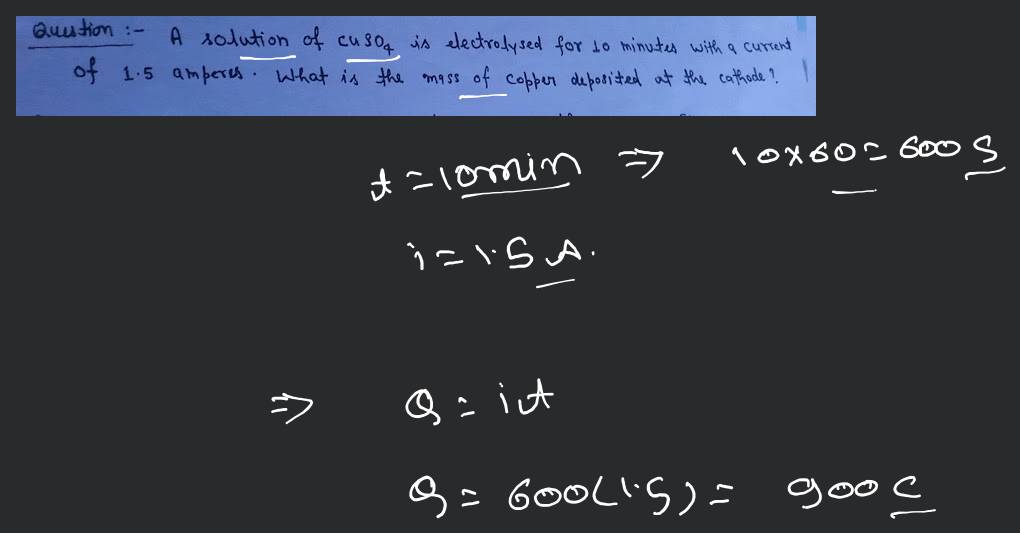 Question :- A solution of CuSO4 is electrolysed for 10 minutes with a current
of 1.5 amperes. What is the mass of copper deposited at the cathode?
t = 10min ⇒ 10x60 = 600 S
i = 1.5 A.
⇒ Q = it
Q = 600(1.5) = 900 C